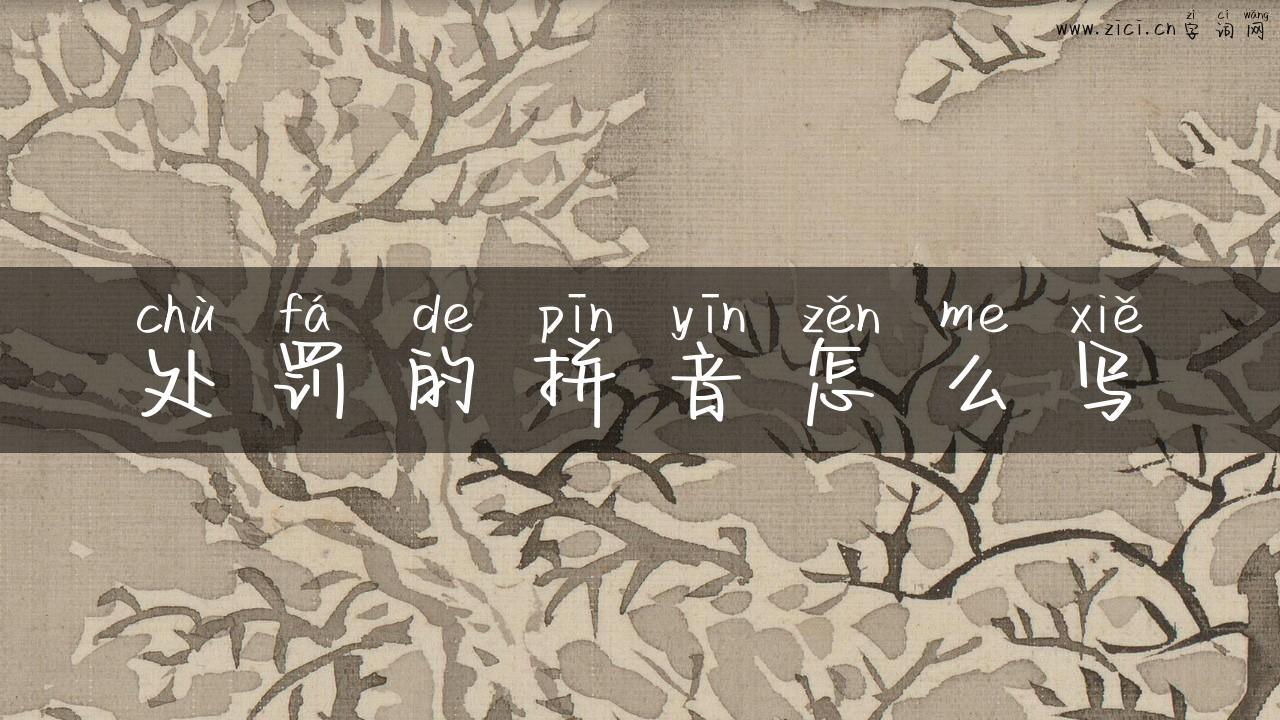 zì cí wǎng
www.zici.cn 字词网
chù fá de pīn yīn zěn me xiě
处罚的拼音怎么写